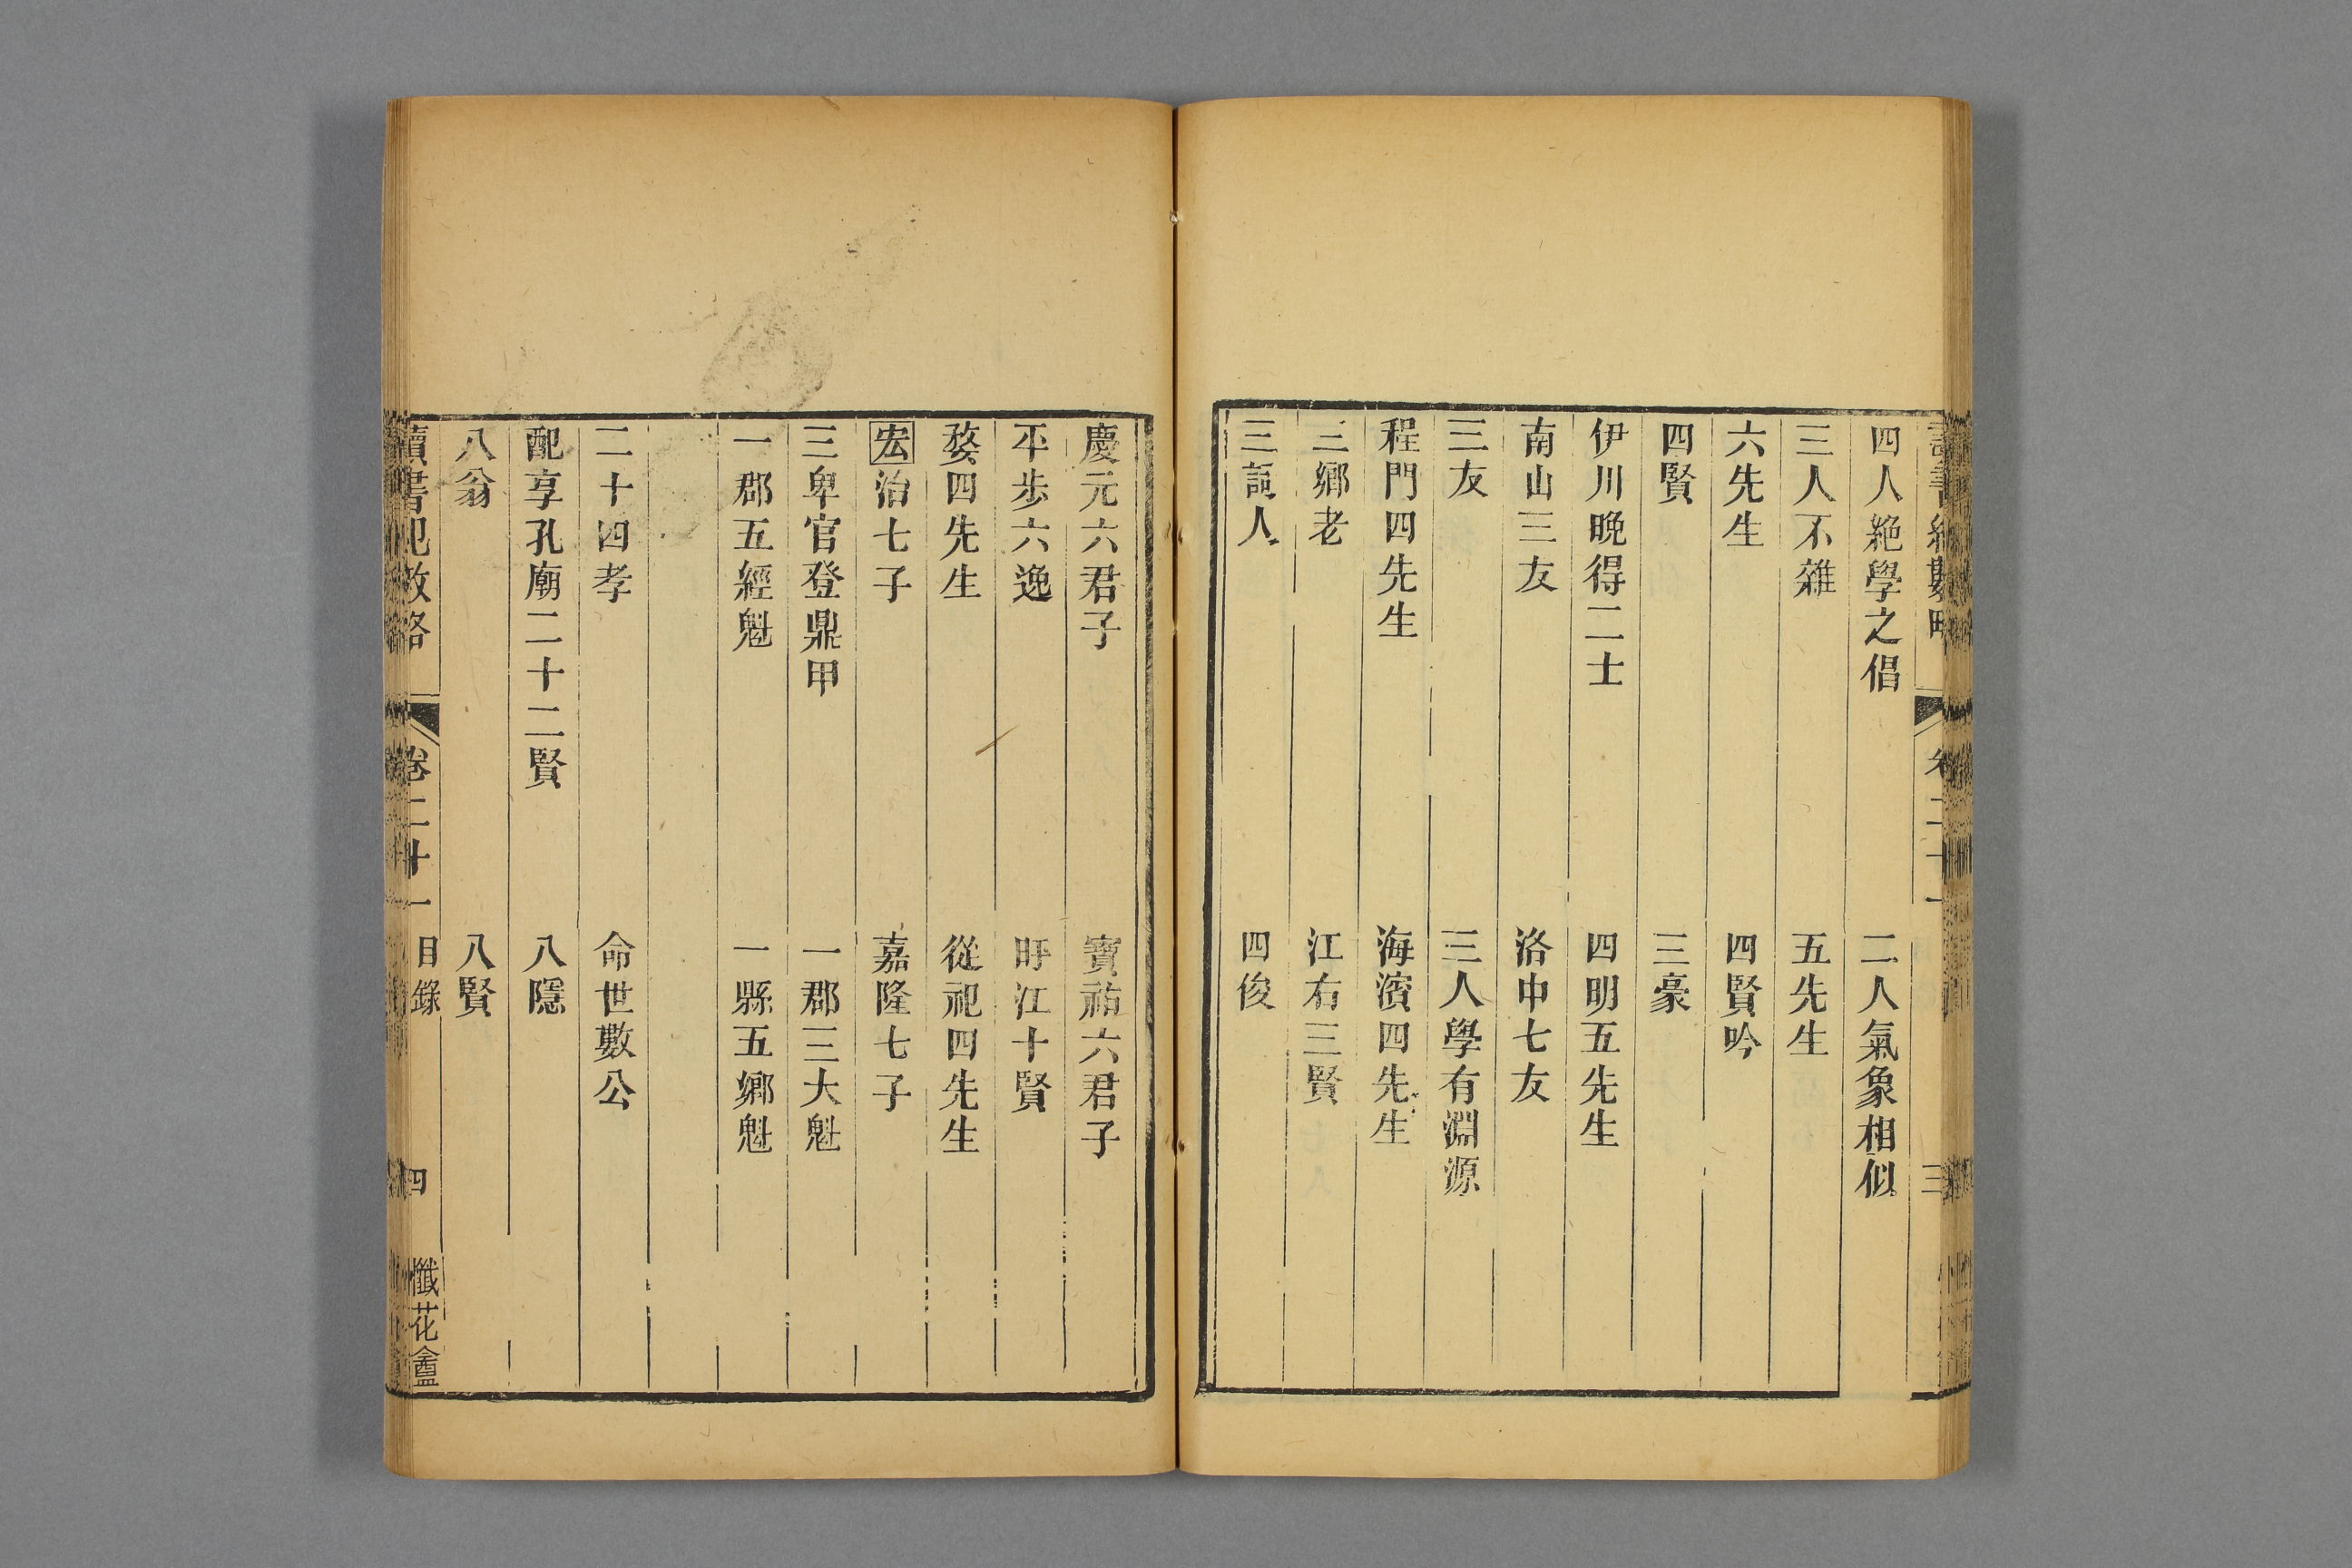 讀書紀數略 卷二十一 三
四人絶學之倡 二人氣象相似
三人不雜 五先生
六先生 四賢吟
四賢 三豪
伊川晩得二士 四明五先生
南山三友 洛中七友
三友 三人學有淵源
程門四先生 海濱四先生
三鄉老 江右三賢
三詞人 四俊
慶元六君子 寶祐六君子
平步六逸 旴江十賢
婺四先生 從祀四先生
宏治七子 嘉隆七子
三卑官登鼎甲 一郡三大魁
一郡五經魁 一縣五鄉魁
二十四孝 命世數公
配享孔廟二十二賢 八隱
八翁 八賢
讀書紀數略 卷二十一 目錄 四 懺花盦